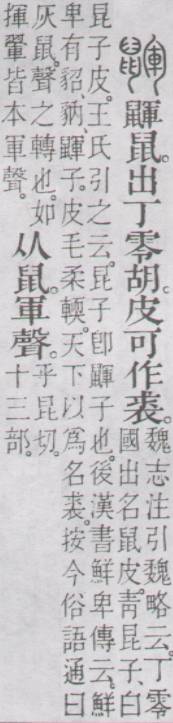 鼲 鼲鼠。出丁零胡。皮可作裘。
魏志注引魏略云。丁零
國出名鼠皮。靑昆子、白
昆子皮。王氏引之云。昆子卽鼲子也。後漢書鮮卑傳云。鮮
卑有貂、豽、鼲子。皮毛柔輭。天下以爲名裘。按今俗語通曰
灰鼠。聲之轉也。如
揮翬皆本軍聲。
从鼠。軍聲。
乎昆切。
十三部。